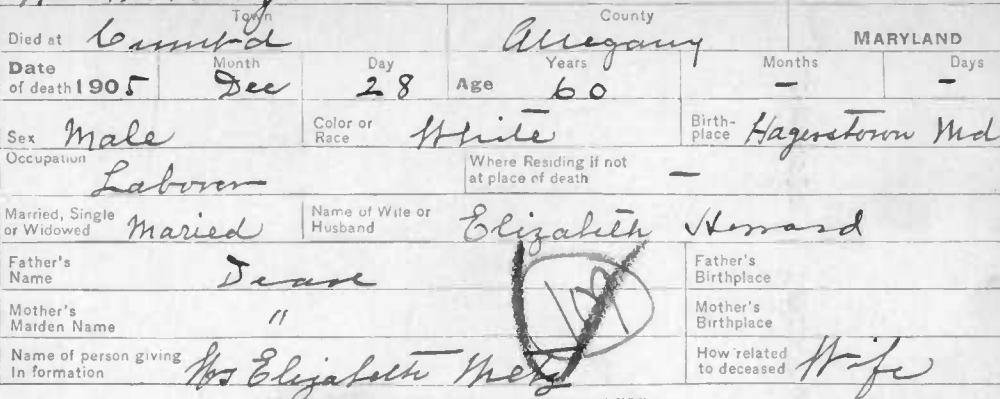 Town County
Died at Cumb'd Allegany MARYLAND
Date of death 1905 Month Dec Day 28 Age Years 60 Months - Days -
Sex Male Color or Race White Birth-place Hagerstown Md
Occupation Laborer Where Residing if not at place of death -
Married, Single or Widowed Maried Name of Wife or Husband Elizabeth Howard
Father's Name Father's Birthplace
Mother's Maiden Name " Mother's Birthplace
Name of person giving In formation Mrs Elizabeth Metz How related to deceased Wife